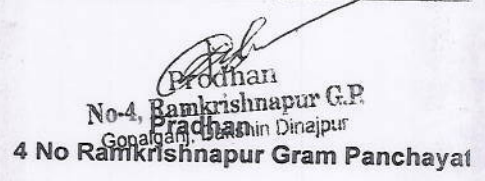 Prodhan
No-4, Ramkrishnapur G.P.
Pradhan
Gopalganj, Dakshin Dinajpur
4 No Ramkrishnapur Gram Panchayat